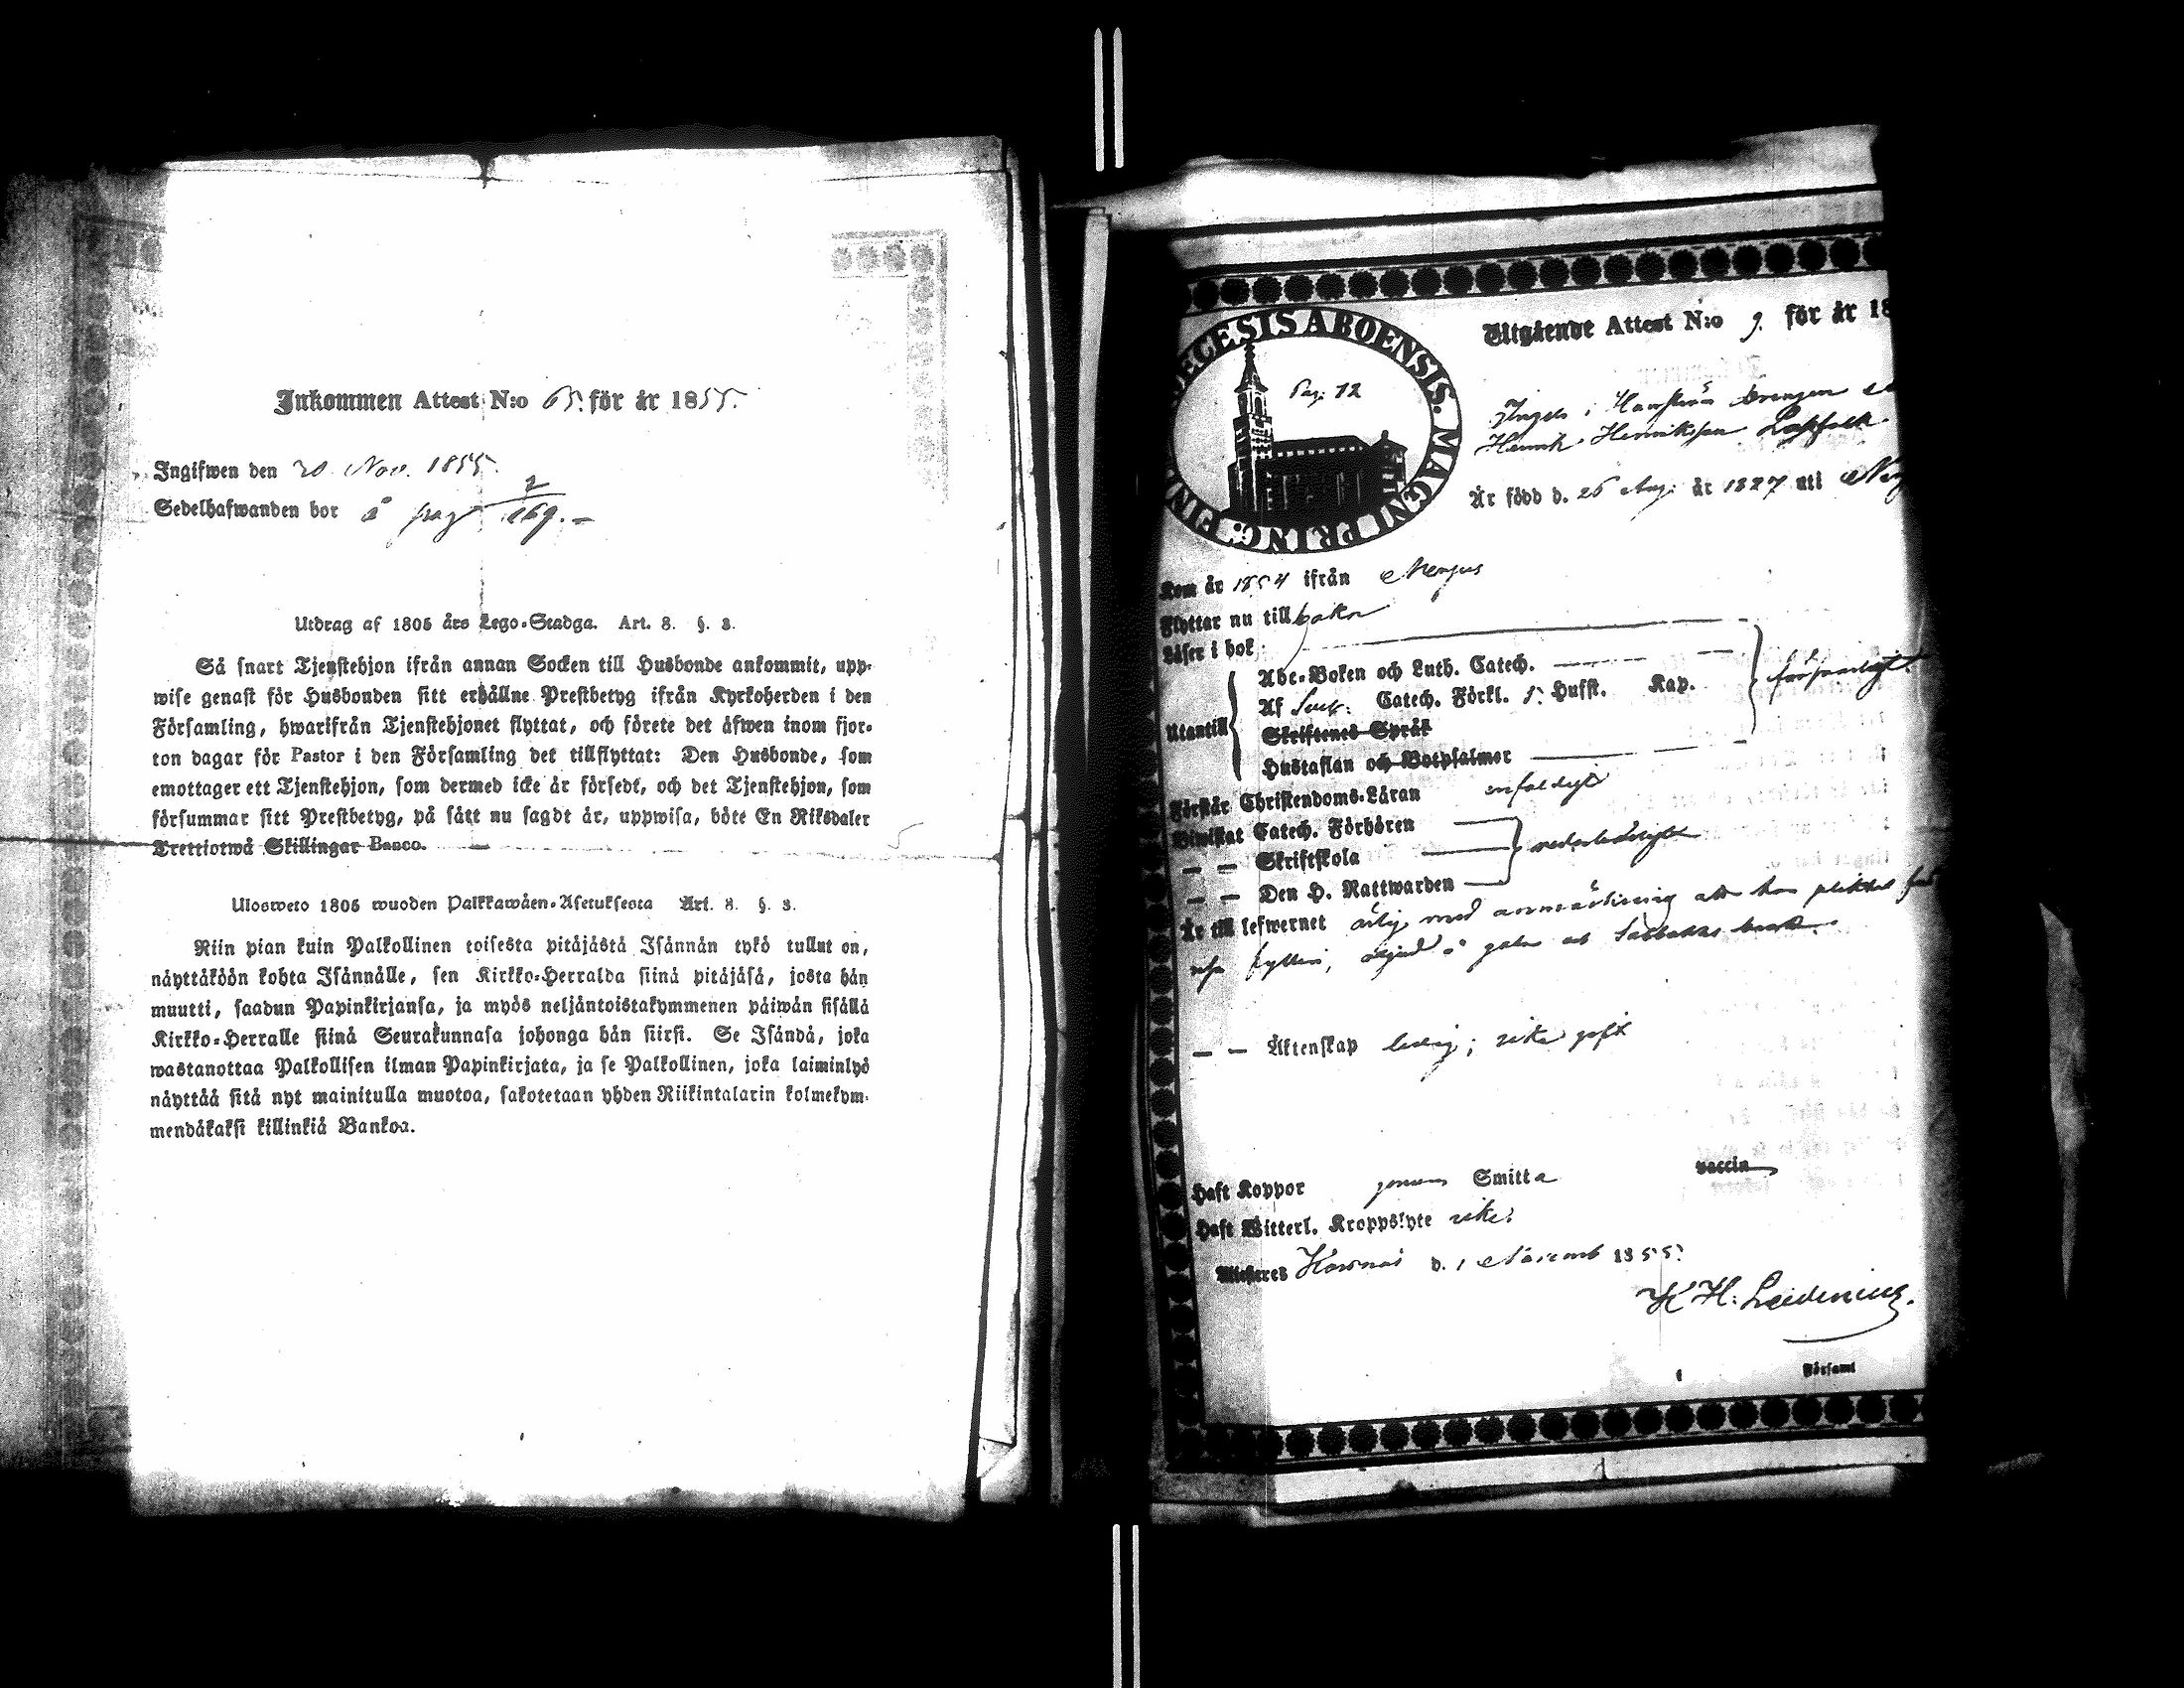 Inkommen Attest N:o 65. för år 1855.
Ingifwen den 20 Nov. 1855.
Sedelhafwanden bor å pag 2/269.
Utdrag af 1805 års Lego-Stadga. Art. 8. §. 3.
Så snart Tjenstehjon ifrån annan Socken till Husbonde ankommit, upp-
wise genast för Husbonden sitt erhållne Prestbetyg ifrån Kyrkoherden i den
Församling, hwarifrån Tjenstehjonet flyttat, och förete det äfwen inom fjor-
ton dagar för Pastor i den Församling det tillflyttat: Den Husbonde, som
emottager ett Tjenstehjon, som dermed icke är försedt, och det Tjenstehjon, som
försummar sitt Prestbetyg, på sätt nu sagdt är, uppwisa, böte En Riksdaler
Trettiotwå Skillingar Banco.
Ulosweto 1805 wuoden Palkkawäen-Asetuksesta Art. 8. §. 3.
Niin pian kuin Palkollinen toisesta pitäjästä Isännän tykö tullut on,
näyttäköön kohta Isännälle, sen Kirkko-Herralda siinä pitäjäsä, josta hän
muutti, saadun Papinkirjansa, ja myös neljäntoistakymmenen päiwän sisällä
Kirkko-Herralle siinä Seurakunnasa johonga hän siirsi. Se Isändä, joka
wastanottaa Palkollisen ilman Papinkirjata, ja se Palkollinen, joka laiminlyö
näyttää sitä nyt mainitulla muotoa, sakotetaan yhden Riikintalarin kolmekym-
mendäkaksi killinkiä Bankoa.
DIECESIS ABOENSIS. MAGNI PRINC: FIN
Pag: 72
Utgående Attest N:o 9. för år 18
Drengen
Henrik Henriksson
Är född d. 26 Aug: år 1827 uti
Kom år 1854 ifrån Nengus
Flyttar nu till
Läser i bok
Abc-Boken och Luth. Catech.
Utantill
Af Catech. Förkl. 5. Hufst. Kap. försvarligt
Skriftenes Språk
Hustaflan och Botpsalmer
Förstår Christendoms-Läran enfaldigt
Biwistat Catech. Förhören
— — Skriftskola vederbörligt
— — Den H. Nattwarden
Är till lefwernet ärlig med anmärkning att han pliktat för
fylleri,
— — Äktenskap ledig; icke gift
Haft Koppor genom Smitta vaccin
Haft Witterl. Kroppslyte icke.
Attesteras d. 1 Novemb 1855.
K H: Leidenius.
Församl